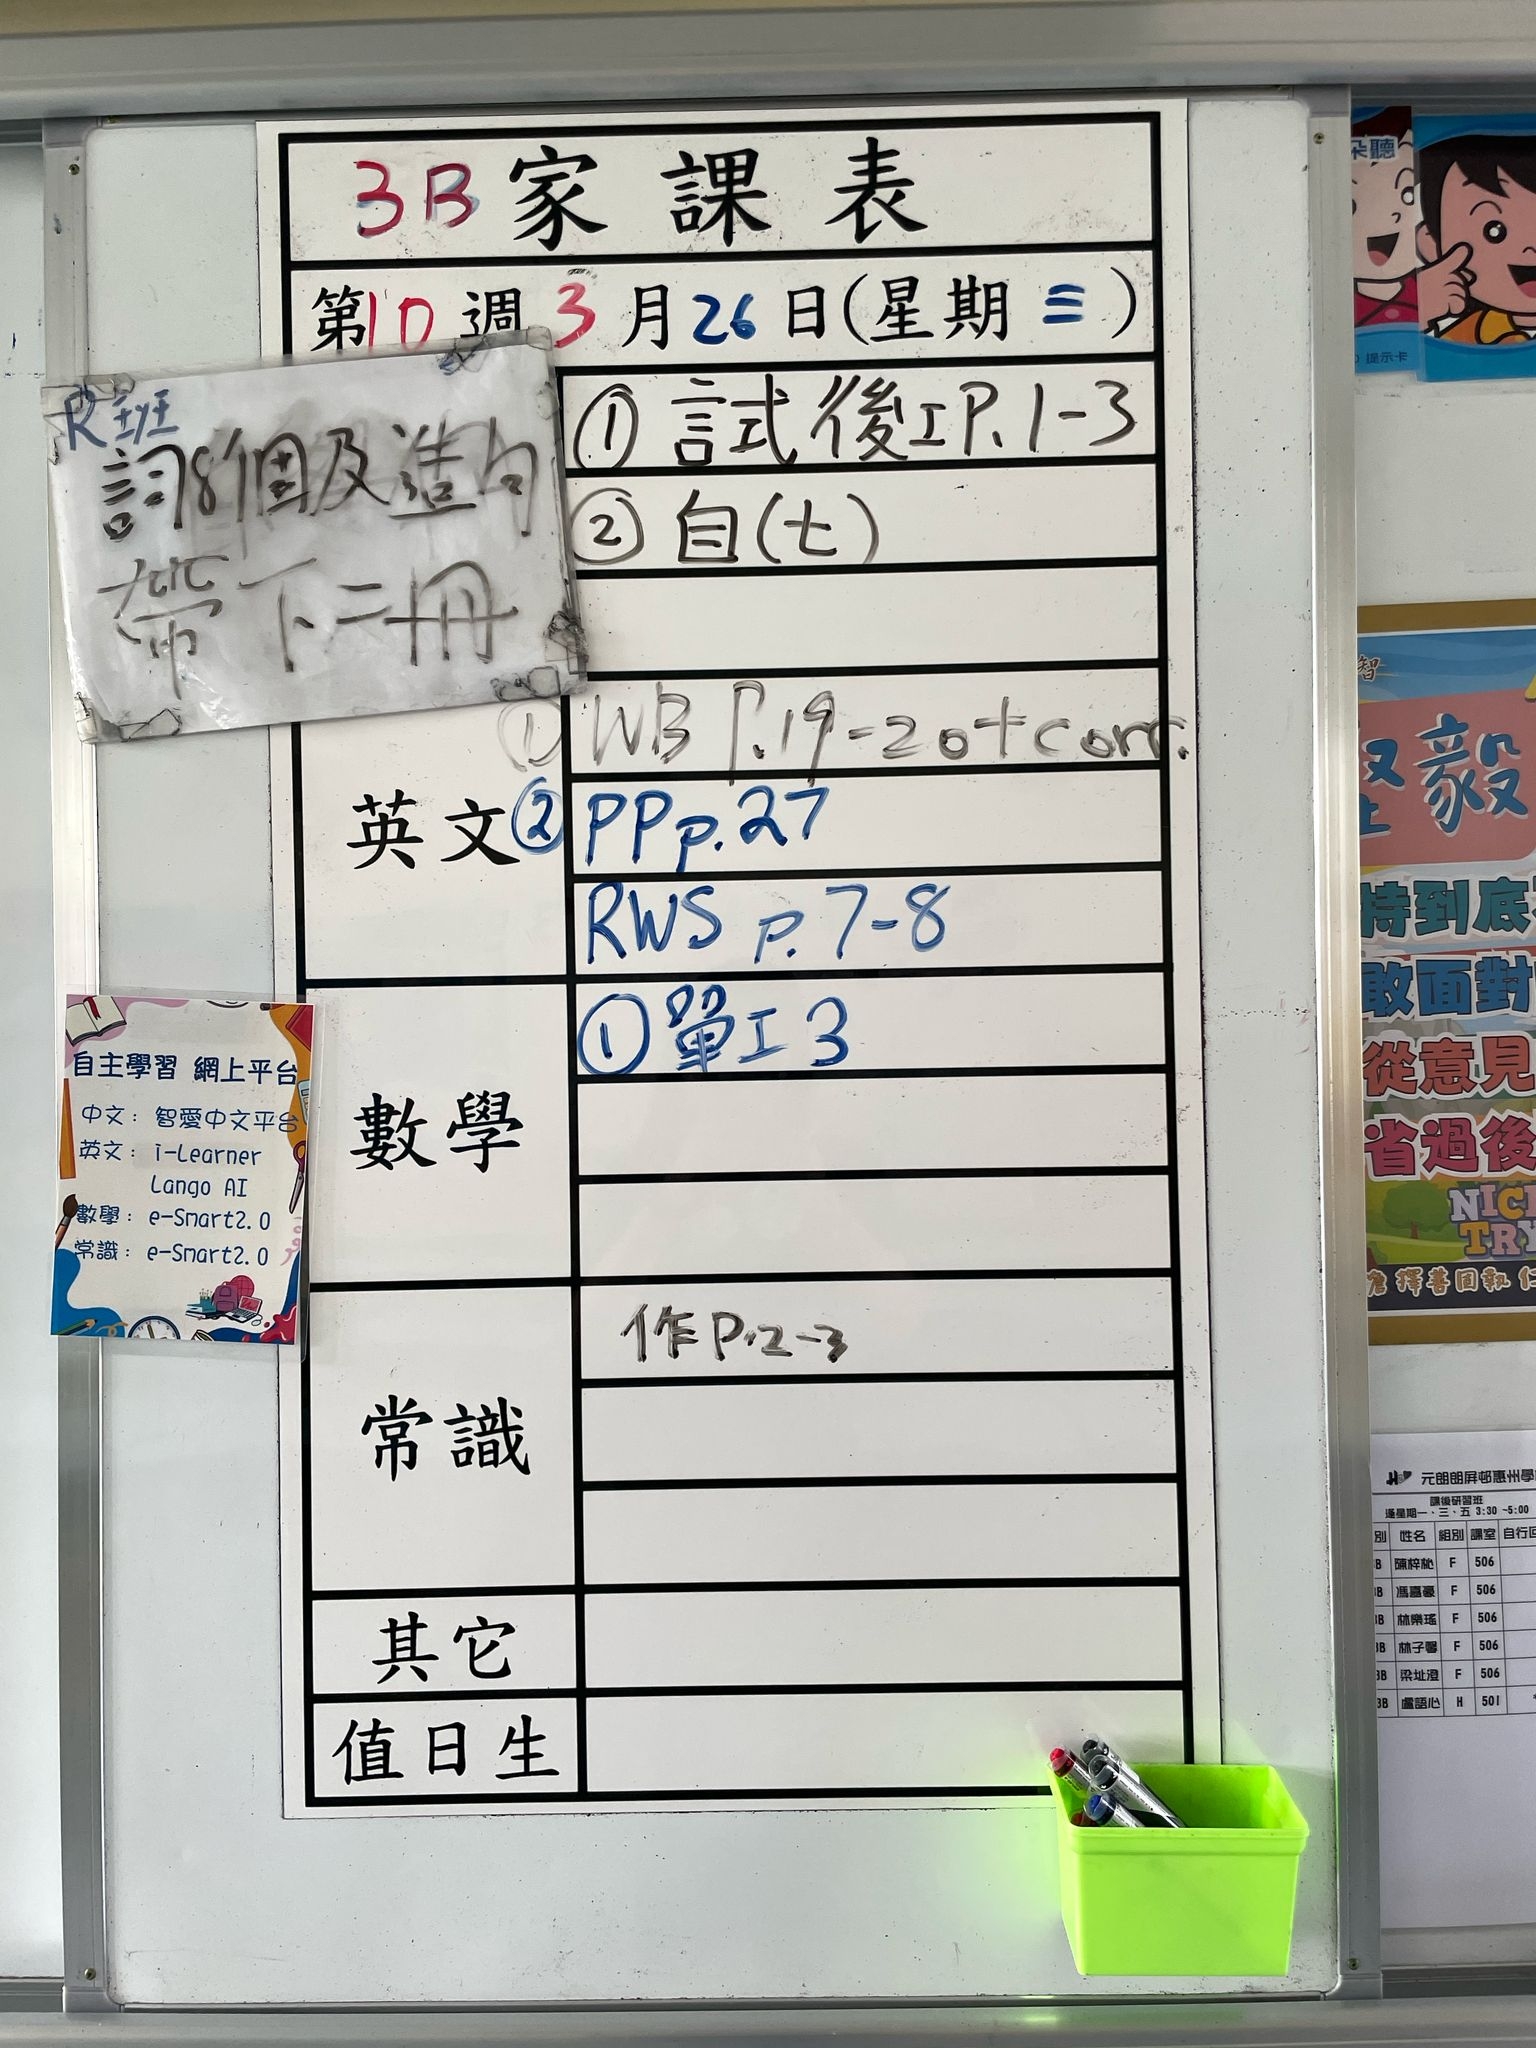 3B家課表
第10週3月26日(星期三)
R班
詞8個及造句
帶下二冊
① 試後工P.1-3
② 自(七)
英文
① WB P.19-20+corr.
② PP p.27
RWS p.7-8
數學
① 單工3
常識
作P.2-3
其它
值日生
自主學習 網上平台
中文：智愛中文平台
英文：i-Learner
Lango AI
數學：e-Smart2.0
常識：e-Smart2.0
朵聽
提示卡
智
毅
持到底
敢面對
從意見
省過後
NIC
TRY
擇善固執
元朗朗屏邨惠州學
課後研習班
逢星期一、三、五 3:30 ~5:00
別 姓名 組別 課室 自行回
B F 506
3B 馮喜豪 F 506
3B 林樂瑤 F 506
3B 林子馨 F 506
3B 梁址澄 F 506
3B 盧語心 H 501